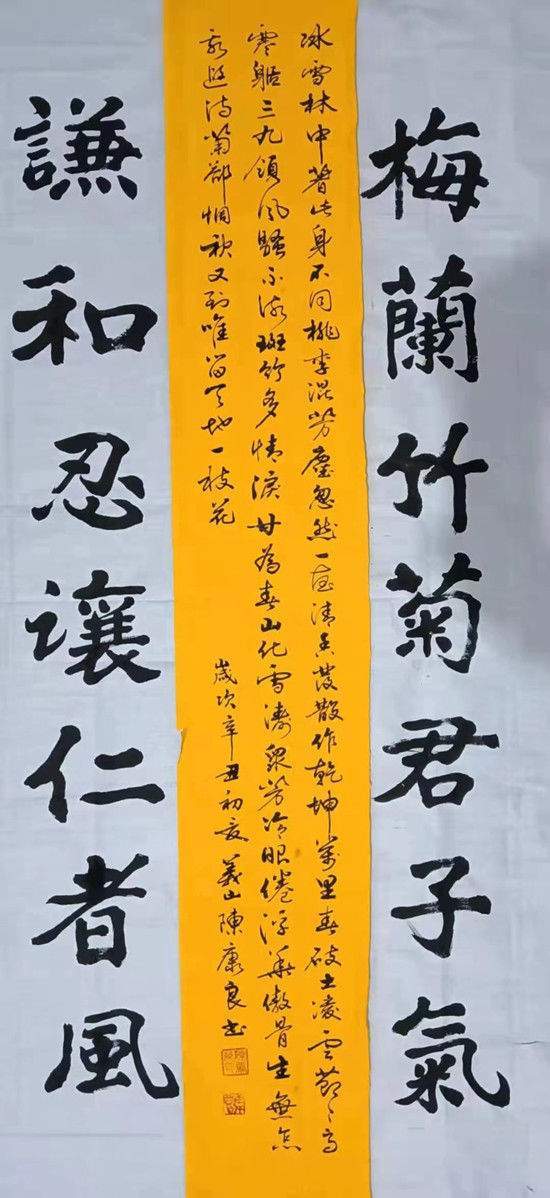 梅蘭竹菊君子氣
冰雪林中著此身不同桃李混芳塵忽然一夜清香發散作乾坤萬里春破土凌雲節々高
寒軀三九領風騷不流斑竹多情淚甘為春山化雪濤眾芳冷眼倦浮華傲骨生無
秋又到唯留天地一枝花
歲次辛丑初夏義山陳康良書
謙和忍讓仁者風